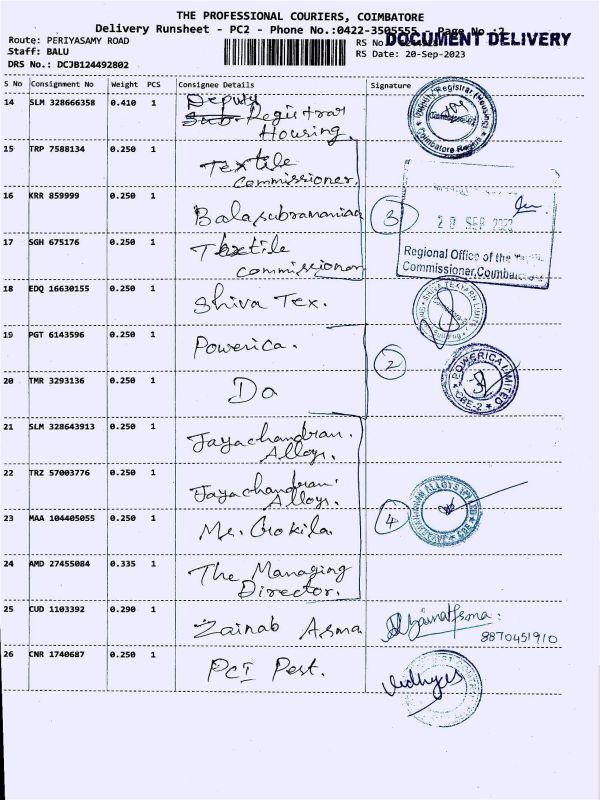 THE PROFESSIONAL COURIERS, COIMBATORE
Delivery Runsheet - PC2 - Phone No.:0422-3505555 Page No.:2
Route: PERIYASAMY ROAD
RS No
DOCUMENT DELIVERY
Staff: BALU
RS Date: 20-Sep-2023
DRS No.: DCJB124492802
S No Consignment No Weight PCS Consignee Details Signature
14 SLM 328666358 0.410 1 Deputy
Sub-Registrar
Housing.
(Housing)
Coimbatore Region
15 TRP 7588134 0.250 1 Textile
Commissioner.
16 KRR 859999 0.250 1 Balasubramanian
3
20 SEP 2023
17 SGH 675176 0.250 1 Textile
Commissioner
Regional Office of the
Commissioner, Coimbatore
18 EDQ 16630155 0.250 1 Shiva Tex.
SHIVA TEXYARN LIMITED
19 PGT 6143596 0.250 1 Powerica.
2
POWERICA LIMITED
CBE-2
20 TMR 3293136 0.250 1 Do
21 SLM 328643913 0.250 1 Jayachandran.
Alloys.
22 TRZ 57003776 0.250 1 Jayachandran.
Alloys.
23 MAA 104405055 0.250 1 Mr. Gokila.
4
24 AMD 27455084 0.335 1 The Managing
Director.
25 CUD 1103392 0.290 1 Zainab Asma
8870451910
26 CNR 1740687 0.250 1 PCI Pest.
Vidhya